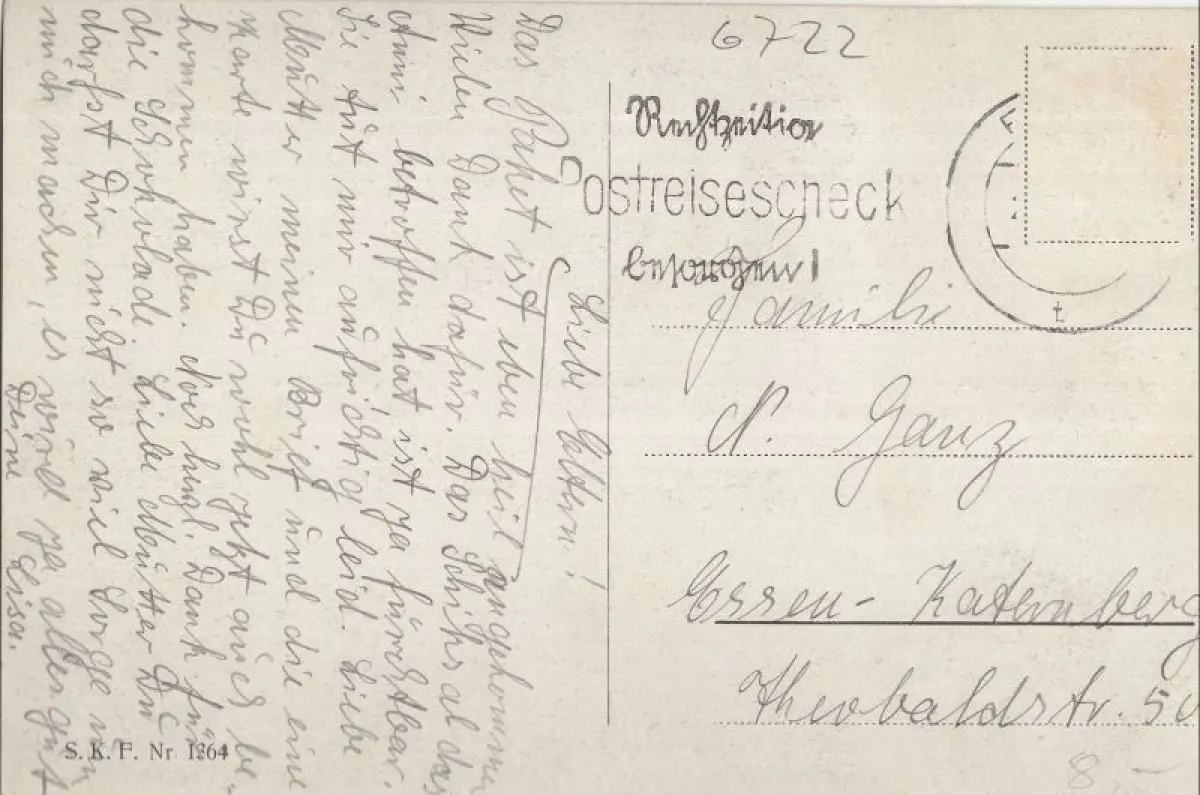 6722
Rechtzeitig
Postreisescheck
besorgen!
Familie
N. Ganz
Essen-Katernberg
Theobaldstr. 50
8,-
Liebe Eltern!
Das Paket ist eben heil angekommen
Vielen Dank dafür. Das Schiksal das
Anni betroffen hat ist ja fürchtbar.
Sie tut mir aufrichtig leid. Liebe
Mutter meinen Brief und die eine
Karte wirst Du wohl jetzt auch be-
kommen haben. Noch hrzl. Dank für
die Schokolade. Liebe Mutter Du
darfst Dir nicht so viel Sorge um
mich machen, es wird ja alles gut
Deine Lisa.
S. K. F. Nr 1264
t